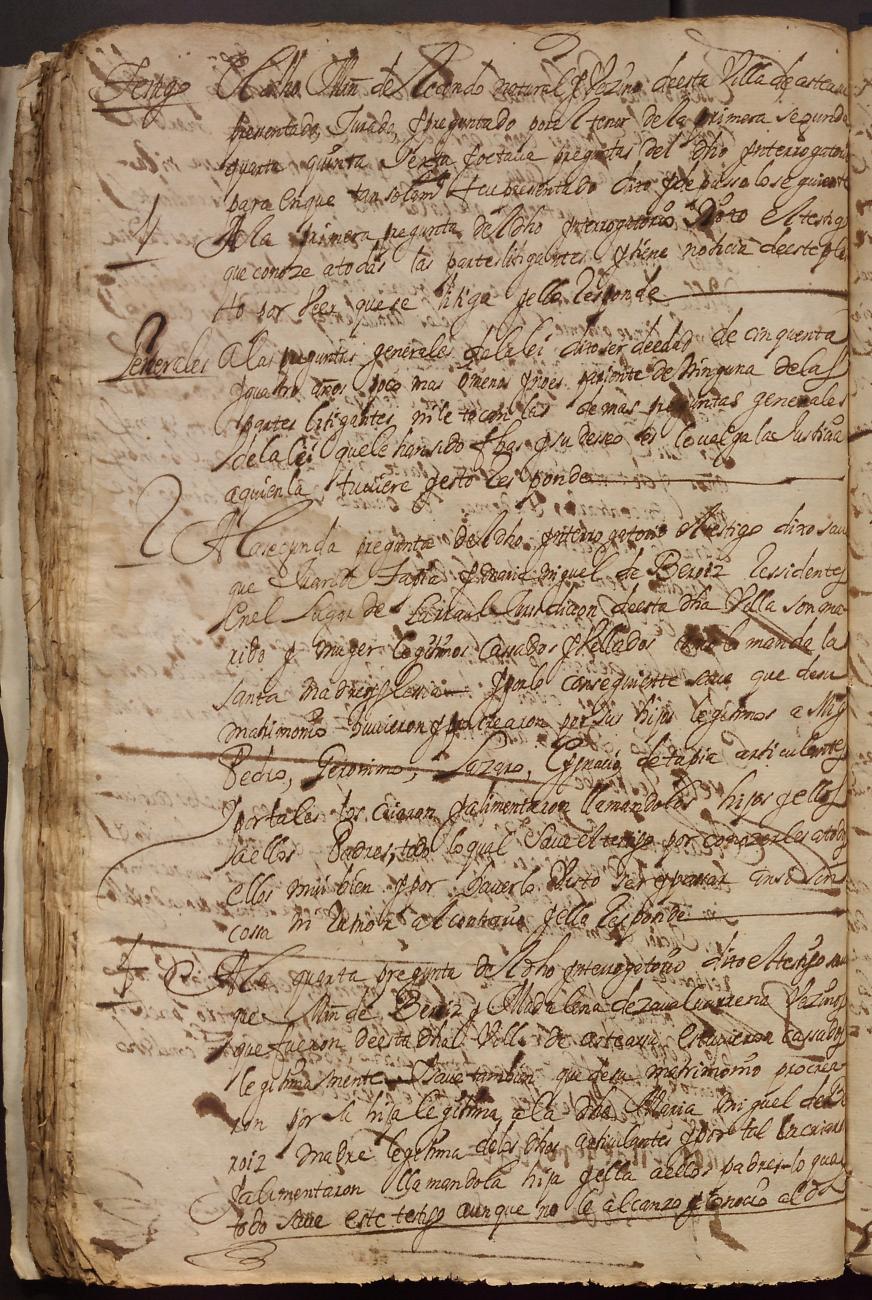 Testigo El dho Min de natural y Vezino deesta Villa de
presentado, Jurado, y preguntado por el tenor de la primera segunda
quarta quinta sexta y octaua preguntas del dho ynterrogatorio
para en que tan solam.te fue presentado dixo y depusso lo seguiente
1 A la primera pregunta del dho ynterrogatorio dixo el testigo
que conoze a todas las partes litigantes y tiene noticia deeste plei
to por Veer que se litiga y ello Responde
Generales A las preguntas generales de la lei dixo ser de edad de cinquenta
y quatro años poco mas o menos y no es pariente de Ninguna de las
partes litigantes ni le tocan las demas preguntas generales
de la lei que le han sido fhas y su deseo es le valga la Justicia
a quien la tuuiere y esto Responde
2 A la segunda pregunta del dho ynterrogatorio el testigo dixo saue
que de Tapia y Maria miguel de Beroiz Residentes
en el lugar de Jurisdicion deesta dha Villa son ma
rido y muger legitimos Cassados y Vellados como lo manda la
santa madre yglesia y por lo conseguiente saue que desu
matrimonio huuieron y procrearon por sus hijos legitimos a
Pedro, Geronimo, Lazaro, Ygnacio de tapia articulantes
y por tales los criaron y alimentaron llamandoles hijos y ellos
a ellos Padres, todo lo qual saue el testigo por conozerles a todos
ellos mui bien y por hauerlo Visto ser y passar ansi sin
cossa ni Rumor al contrario y ello Responde
4 A la quarta pregunta del dho ynterrogatorio dixo el testigo saue
que Min de Beroiz y Madalena de Vezinos
que fueron deesta dha Villa de estuuieron cassados
legitimamente y saue tambien que desu matrimonio procrea
ron por su hija legitima a la dha Maria miguel de Be
roiz madre legitima delos dhos articulantes y por tal la criaron
y alimentaron llamandola hija y ella a ellos padres lo qual
todo saue este testigo aunque no le alcanzo y conocio al dho